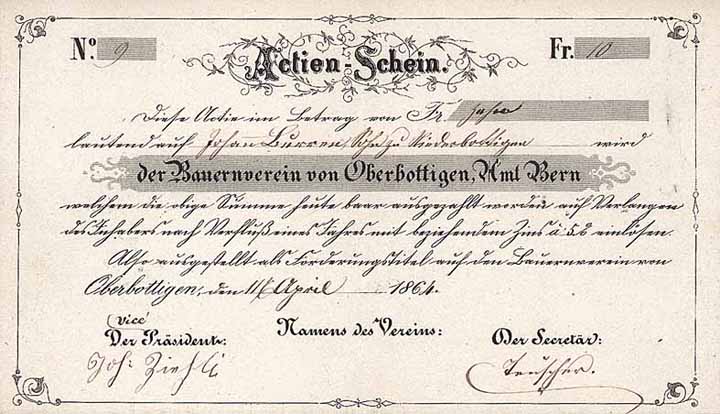 No. 9 Fr. 10
Actien-Schein.
Diese Actie im Betrag von Fr. zehn
lautend auf Johann Burren, Sohn zu Niederbottigen wird
der Bauernverein von Oberbottigen, Amt Bern
welchem die obige Summe heute baar ausgezahlt worden auf Verlangen
des Inhabers nach Verfluß eines Jahres mit beziehendem Zins à 5% einlösen.
Also ausgestellt als Forderungstitel auf den Bauernverein von
Oberbottigen, den April 1864.
Namens des Vereins:
(vice)
Der Präsident: Der Secretär:
Joh: Ziehli Teuscher.